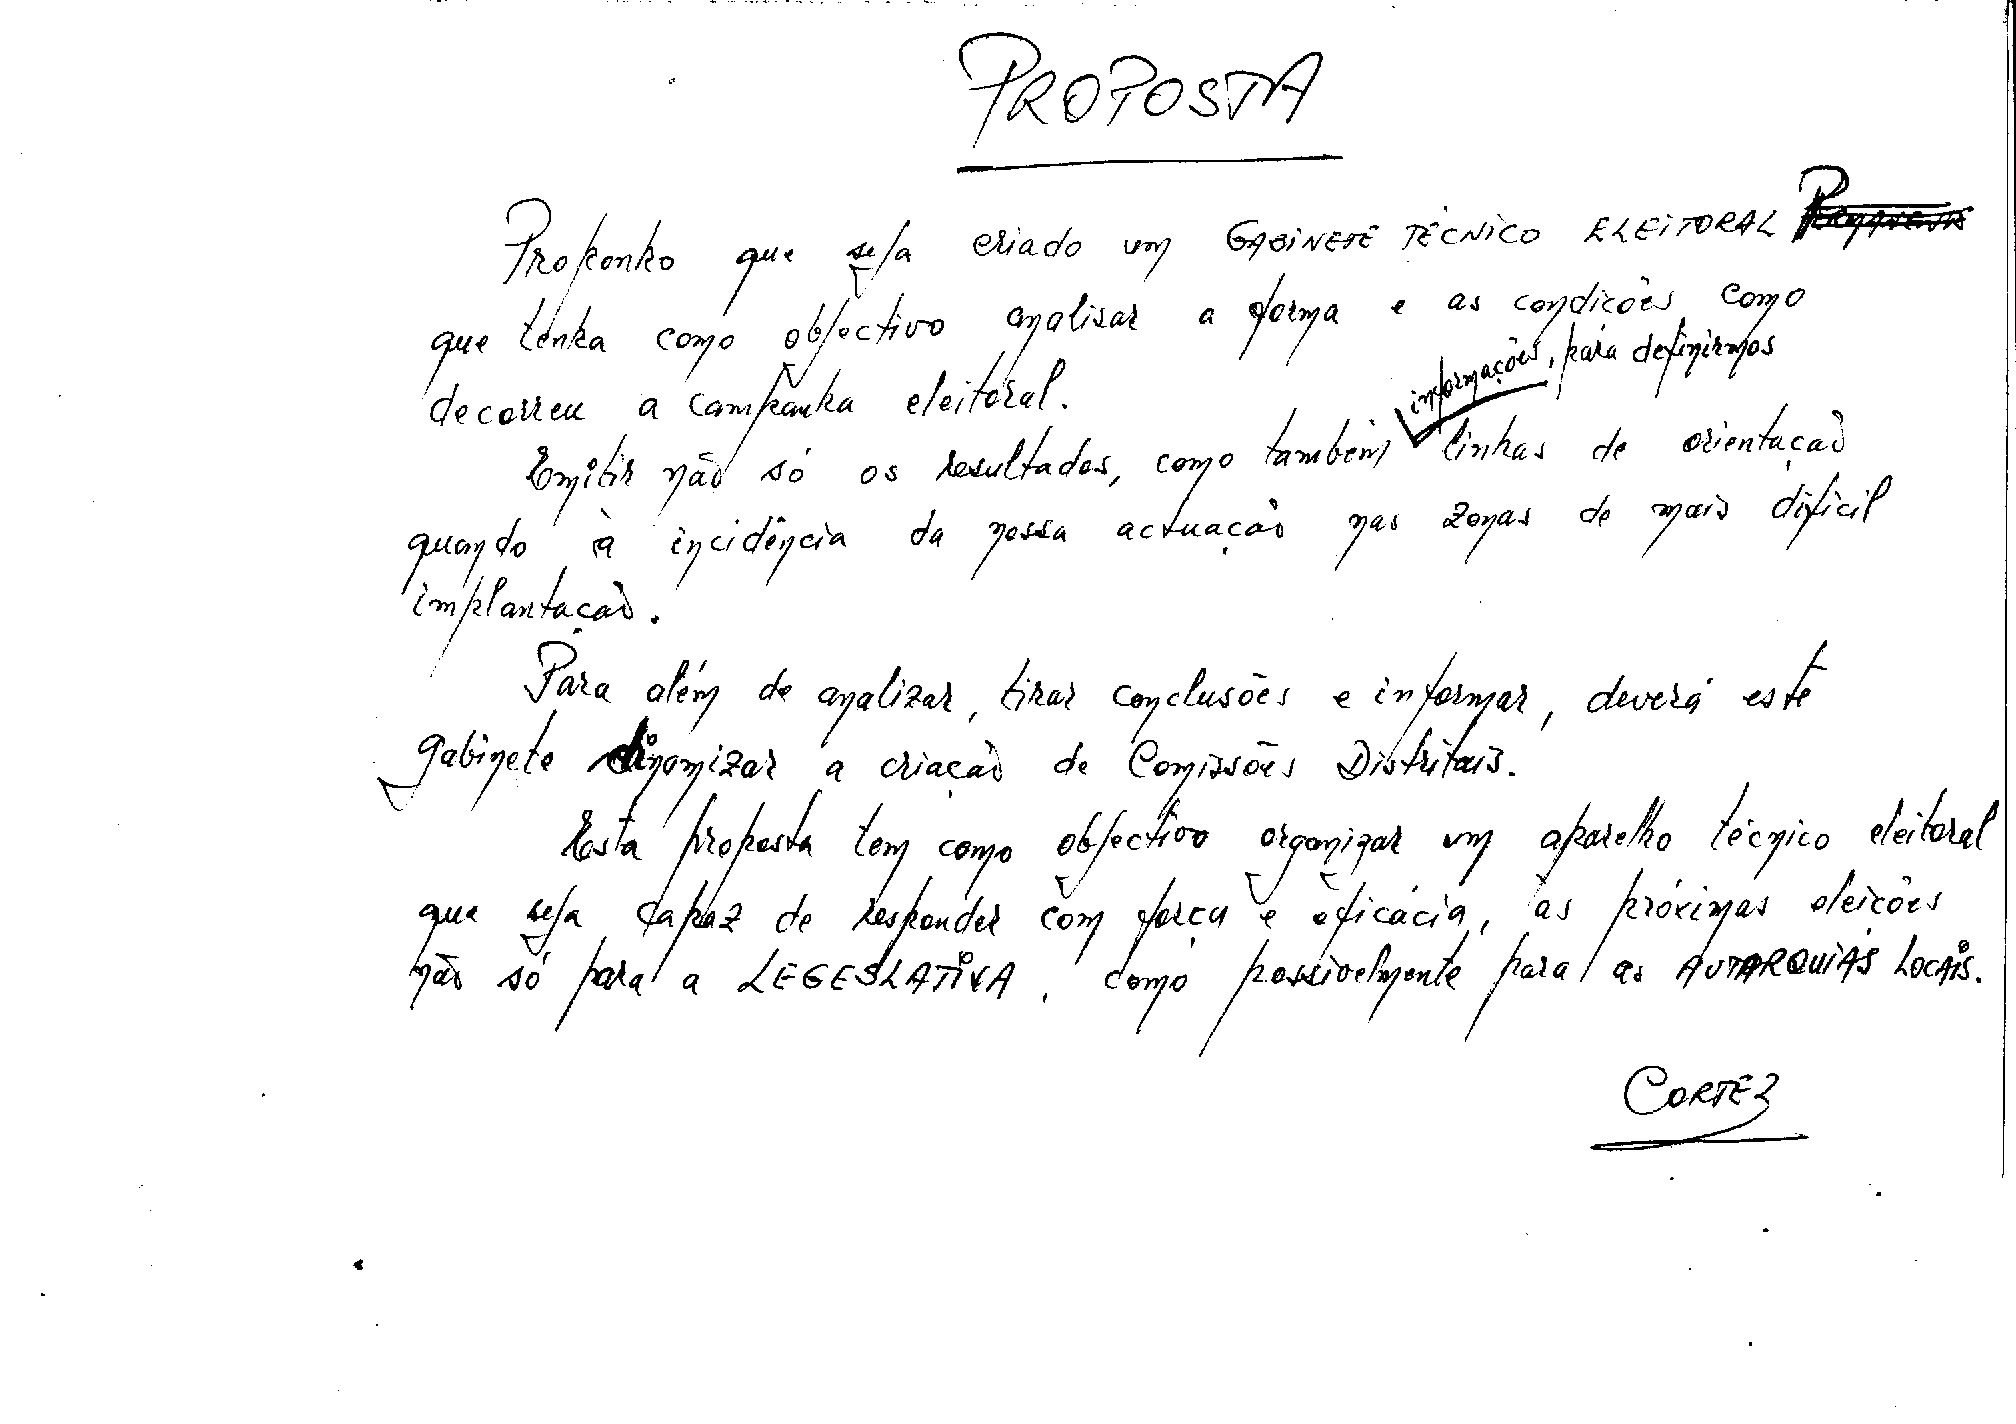 PROPOSTA
Proponho que seja criado um GABINETE TÉCNICO ELEITORAL PERMANENTE
que tenha como objectivo analisar a forma e as condições como
informações, para definirmos
decorreu a campanha eleitoral.
Emitir não só os resultados, como também linhas de orientação
quando à incidência da nossa actuação nas zonas de mais difícil
implantação.
Para além de analizar, tirar conclusões e informar, deverá este
gabinete dinamizar a criação de Comissões Distritais.
Esta proposta tem como objectivo organizar um aparelho técnico eleitoral
que seja capaz de responder com força e eficácia, às próximas eleições
não só para a LEGESLATIVA, como possivelmente para as AUTARQUIAS LOCAIS.
CORTEZ